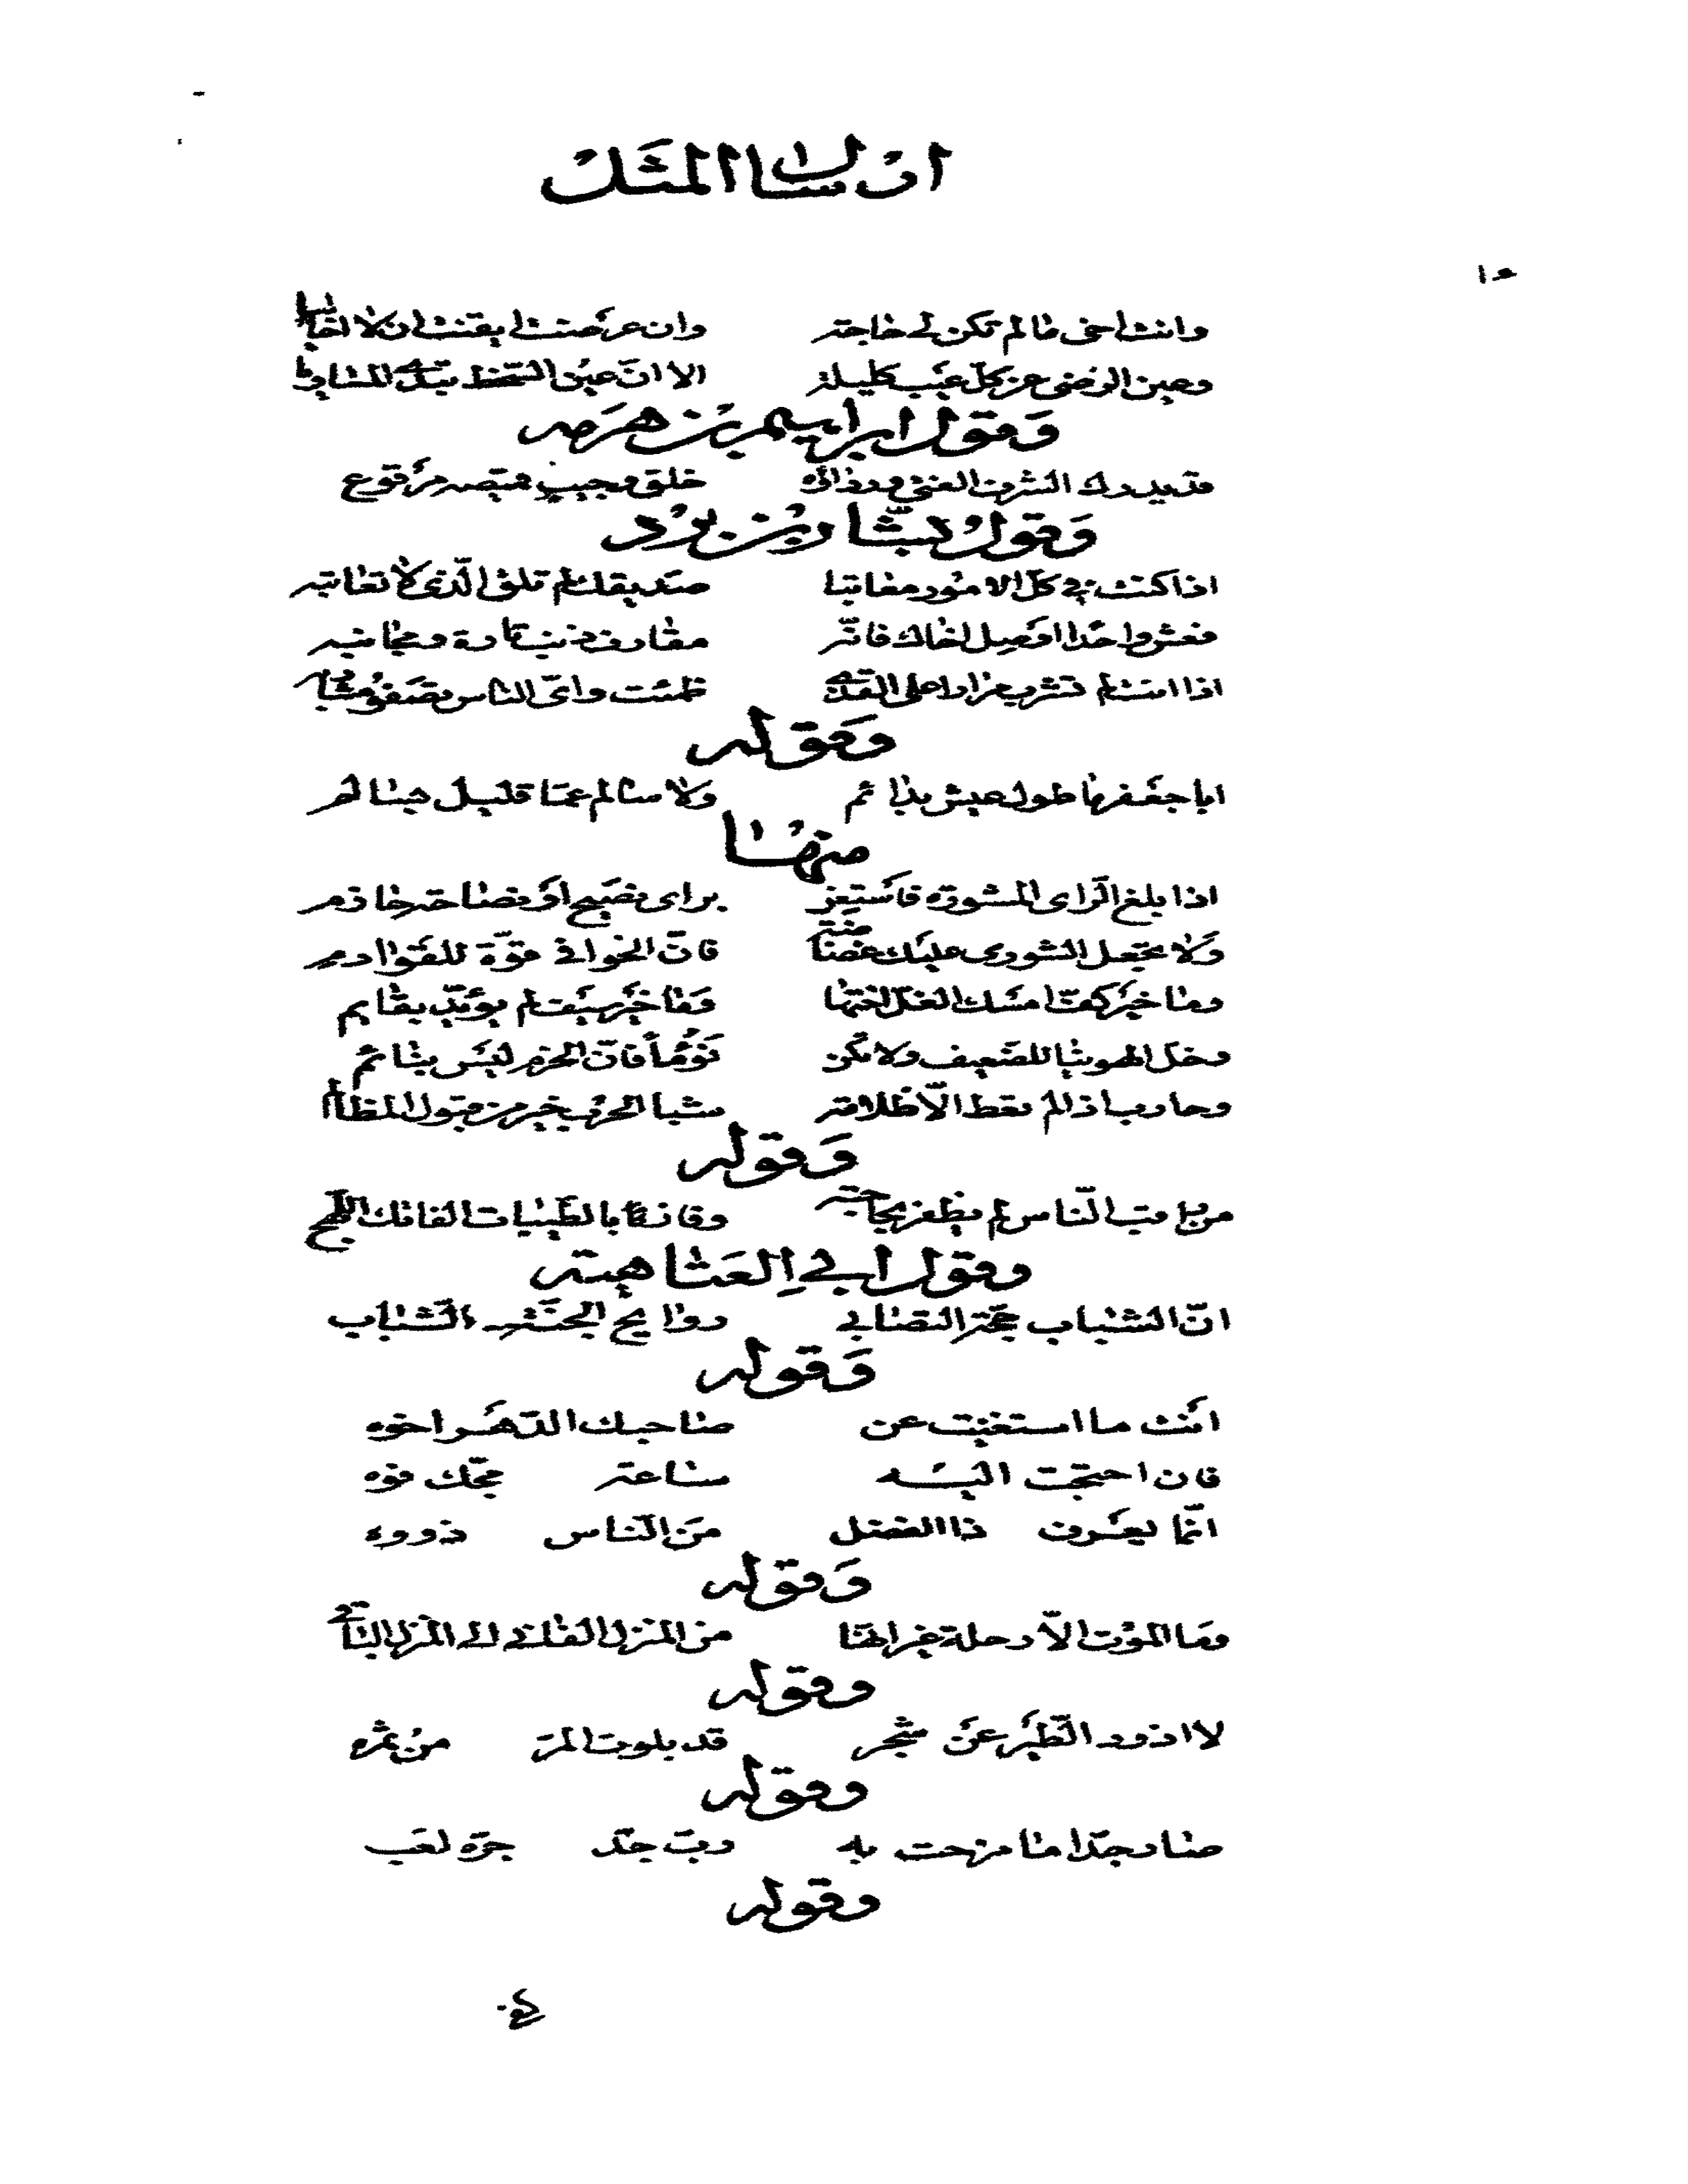 ارسال المثل
وانت اخى ما لم تكن لى حاجة وان عرضت ايقنت ان لا اخا ليا
وعين الرضى عن كلّ عيب كليلة الا انّ عين السخط تبدى المساويا
وَقول ابراهيم بن هَرمه
قد يدرك الشرف الفتى ورداؤه خلق وجيب قميصه مَرقوع
وَقول بشّار بن بُرد
اذا كنت فى كلّ الامور معاتبا صديقك لم تلق الّذى لا تعاتبه
فعش واحدا او صل اخاك فانّه مقارف ذنب تارة ومجانبه
اذا انت لم تشرب مرارا على القذى ظمئت واىّ الناس تصفو مشاربه
وَقوله
ابا جعفر ما طول عيش بدائم وَلا سالم عمّا قليل بسالم
منها
اذا بلغ الرّاى المشورة فاستعن براى نصيح او نصاحة حازم
وَلا تجعل الشورى عليك غضاضة فانّ الخوافى قوّة للقوادم
وما خير كفّ امسك الغلّ اختها وَما خير سيف لم يؤيّد بقائم
وخلّ الهوينا للضعيف ولا تكن نؤماً فانّ الحزم ليس بنائم
وحارب اذا لم تعط الّا ظلامة شبا الحرب خير من قبول المظالم
وَقوله
من راقب النّاس لم يظفر بحاجته وفاز بالطّيبات الفاتك اللّهج
وقول ابى العتاهية
انّ الشباب حجّة التصابى روائح الجنّة فى الشّباب
وَقوله
انت ما استغنيت عن صاحبك الدّهر اخوه
فان احتجت اليه ساعة مجّك فوه
انّما يعرف ذا الفضل من النّاس ذووه
وَقوله
وما الموت الّا رحلة غير انّها من المنزل الفانى الى المنزل الباقى
وقوله
لا اذود الطّير عن شجر قد بلوت المرّ من ثمره
وقوله
صار جدّا ما مزحت به ربّ جدّ جرّه لعب
وقوله